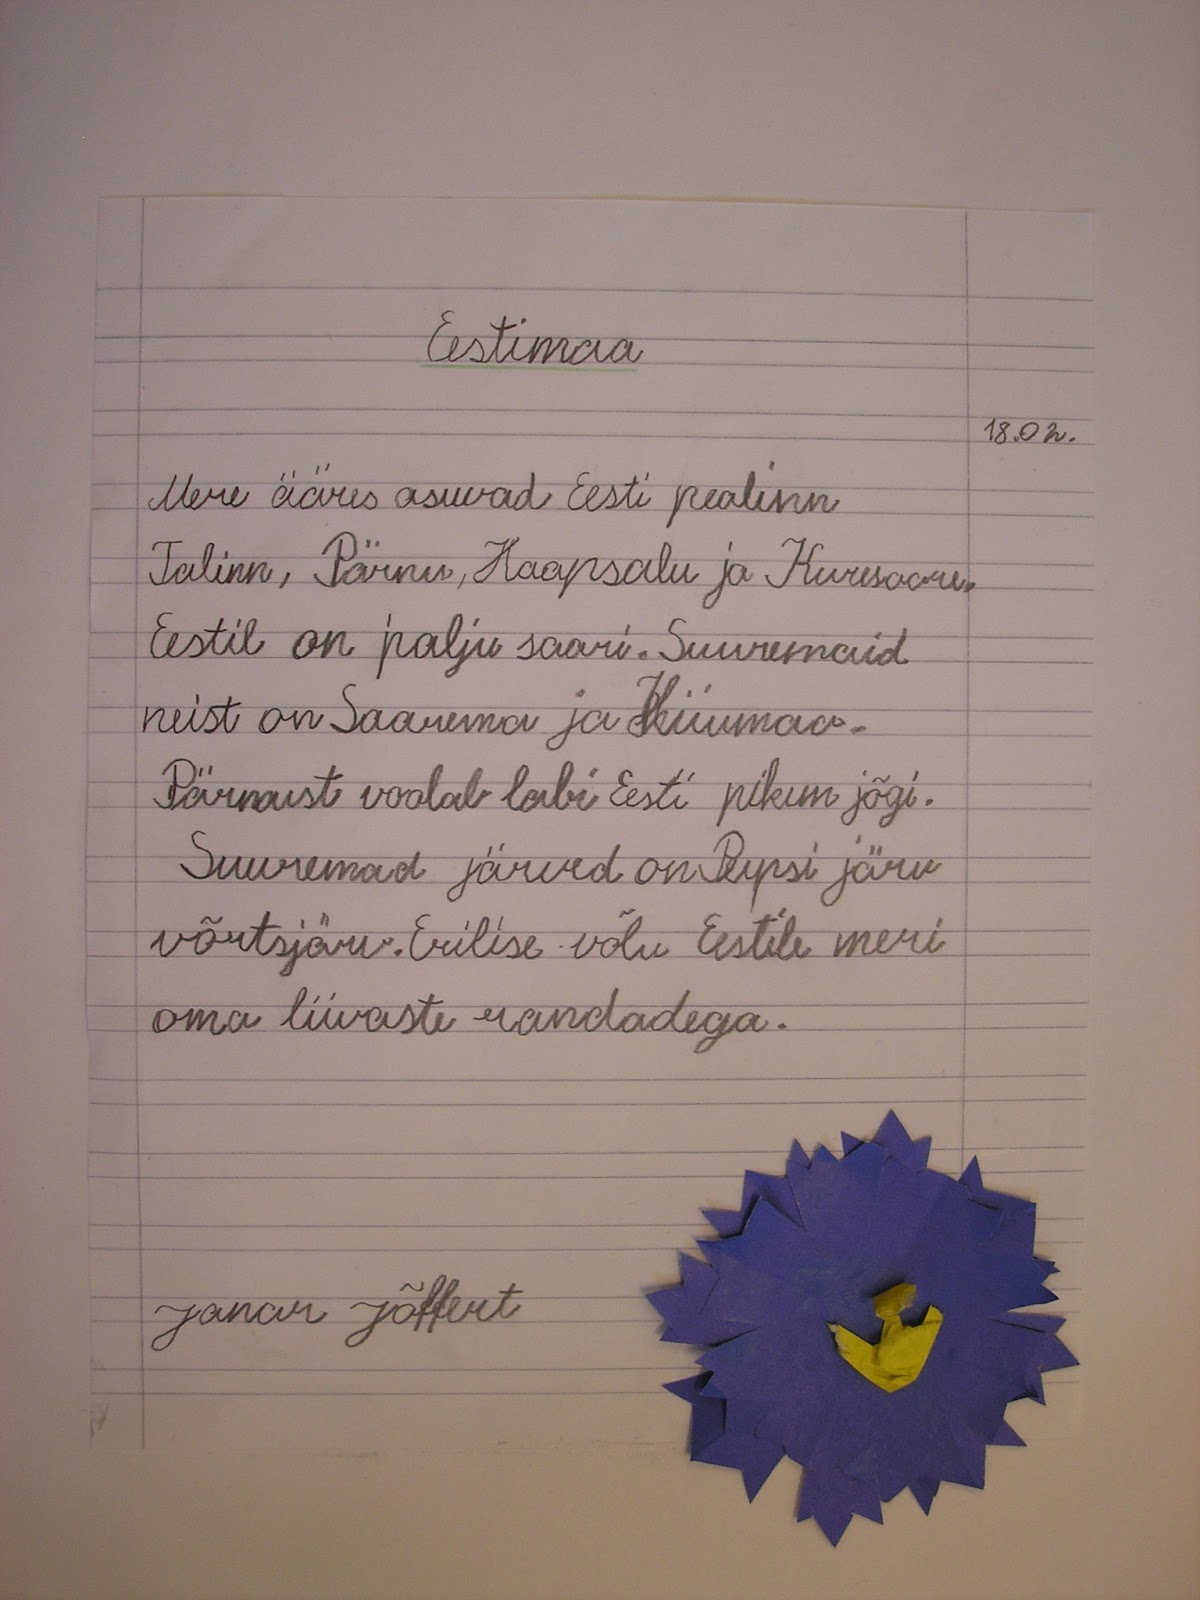 Eestimaa
18.02.
Mere ääres asuvad Eesti pealinn
Talinn, Pärnu, Haapsalu ja Kuresaare.
Eestil on palju saari. Suuremaid
neist on Saarema ja Hiiumaa.
Pärnaust voolab labi Eesti pikim jõgi.
Suuremad järved on Peipsi järv
võrtsjärv. Erilise võlu Eestile meri
oma liivaste randadega.
janar jõffert